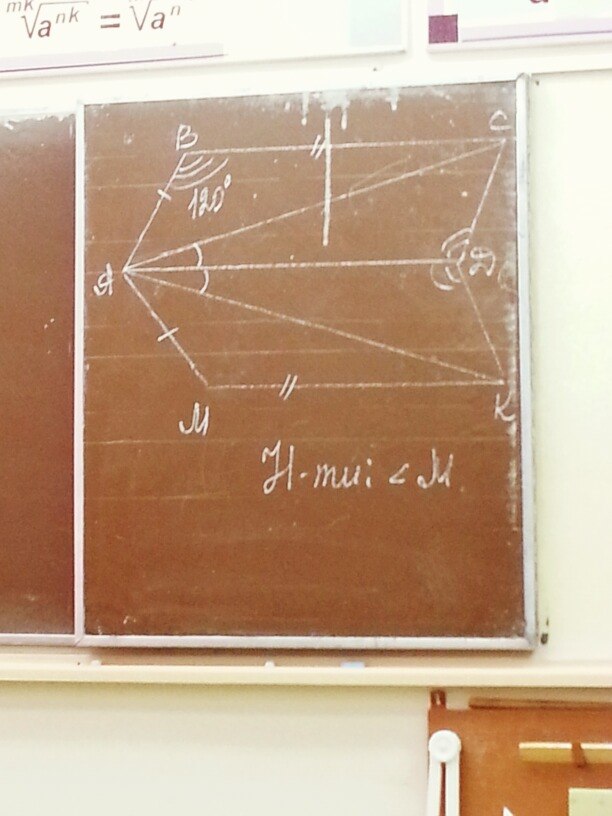 mk√a^nk = n√a^n
B
C
120°
A
D
M
K
Н-ти: < M.